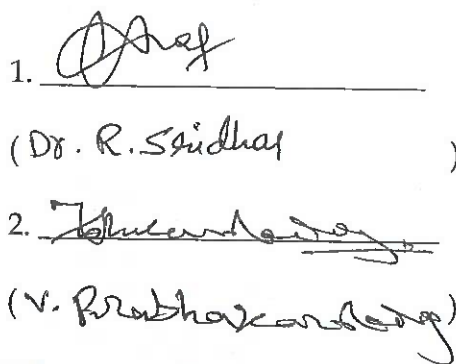 1.
(Dr. R. Sridhar)
2.
(V. Prabhakar Reddy)